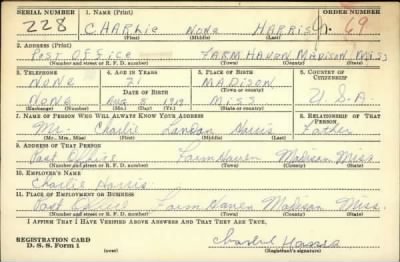 SERIAL NUMBER 1. NAME (Print) ORDER NUMBER
228 CHARLIE None HARRIS Jr. 69
(First) (Middle) (Last)
2. ADDRESS (Print)
Post Office FARM HAVON MADISON, MISS
(Number and street or R. F. D. number) (Town) (County) (State)
3. TELEPHONE 4. AGE IN YEARS 5. PLACE OF BIRTH 6. COUNTRY OF CITIZENSHIP
NONE 21 MADISON
DATE OF BIRTH (Town or county)
None Aug 8, 1919 MISS U.S.A
(Exchange) (Number) (Mo.) (Day) (Yr.) (State or country)
7. NAME OF PERSON WHO WILL ALWAYS KNOW YOUR ADDRESS 8. RELATIONSHIP OF THAT PERSON
Mr. Charlie Harris Father
(Mr., Mrs., Miss) (First) (Middle) (Last)
9. ADDRESS OF THAT PERSON
Post Office Farm Haven Madison Miss.
(Number and street or R. F. D. number) (Town) (County) (State)
10. EMPLOYER'S NAME
Charlie Harris
11. PLACE OF EMPLOYMENT OR BUSINESS
Post Office Farm Haven Madison Miss.
(Number and street or R. F. D. number) (Town) (County) (State)
I AFFIRM THAT I HAVE VERIFIED ABOVE ANSWERS AND THAT THEY ARE TRUE.
REGISTRATION CARD
D. S. S. Form 1 (over) Charlie Harris
(Registrant's signature)